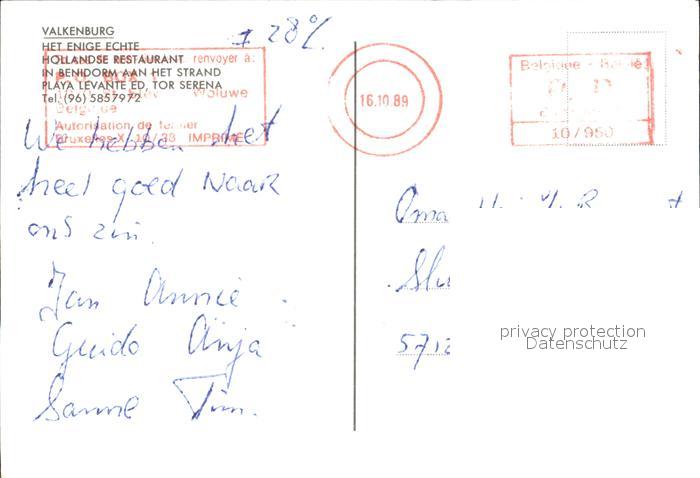 VALKENBURG
HET ENIGE ECHTE
HOLLANDSE RESTAURANT
IN BENIDORM AAN HET STRAND
PLAYA LEVANTE ED, TOR SERENA
Tel. (96) 5857972
± 28%
renvoyer à:
Woluwe
Belgique
Autorisation de fermer
Bruxelles X 10/33 IMPRIMÉ
16.10.89
Belgique - België
10/950
We hebben het
heel goed Naar
ons zin.
Jan Annie
Guido Anja
Sanne Tim.
Oma
5712
privacy protection
Datenschutz